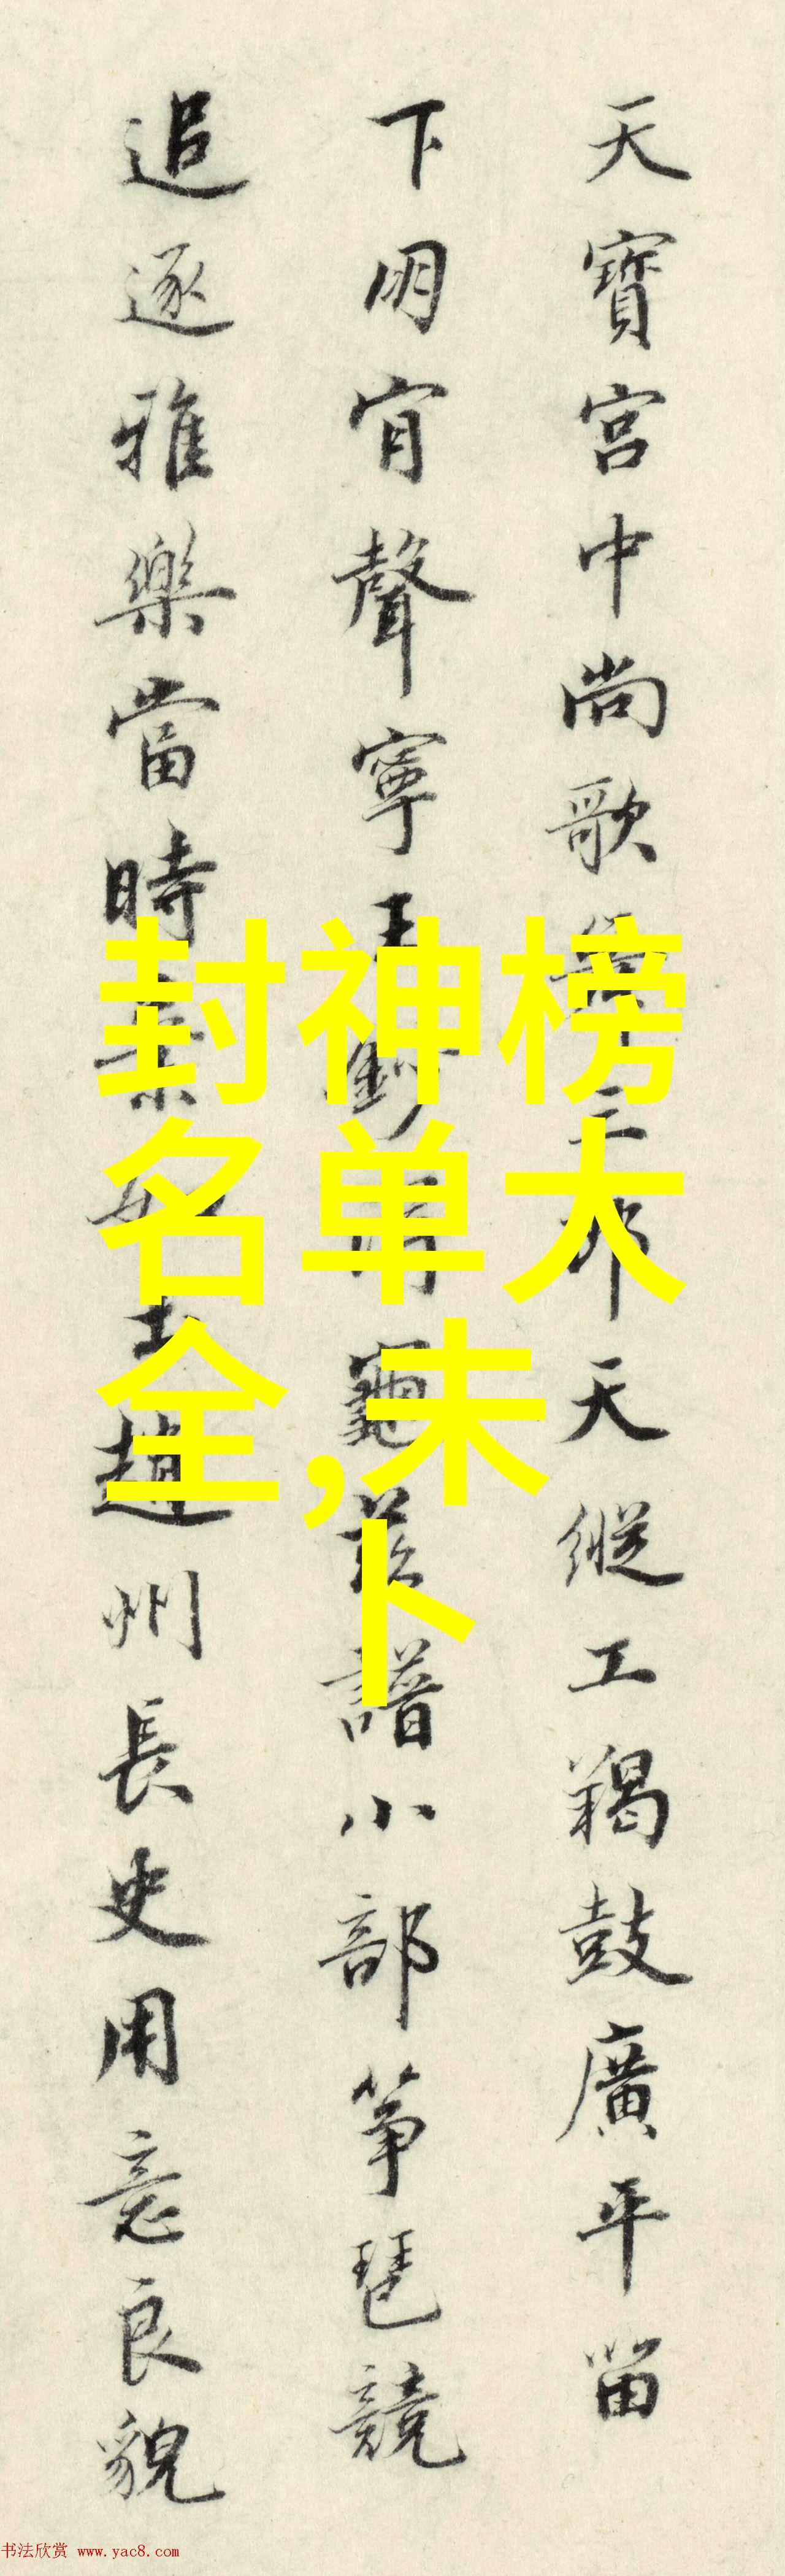 天寶宮中尚歌舞三郎天縱工羯鼓廣平留
下明宵聲寧王龜茲譜小部箏琶競
追逐雅樂當時趙州長史用意良貌
封神榜
名单大
全,未
卜
书法欣赏 www.yac8.com